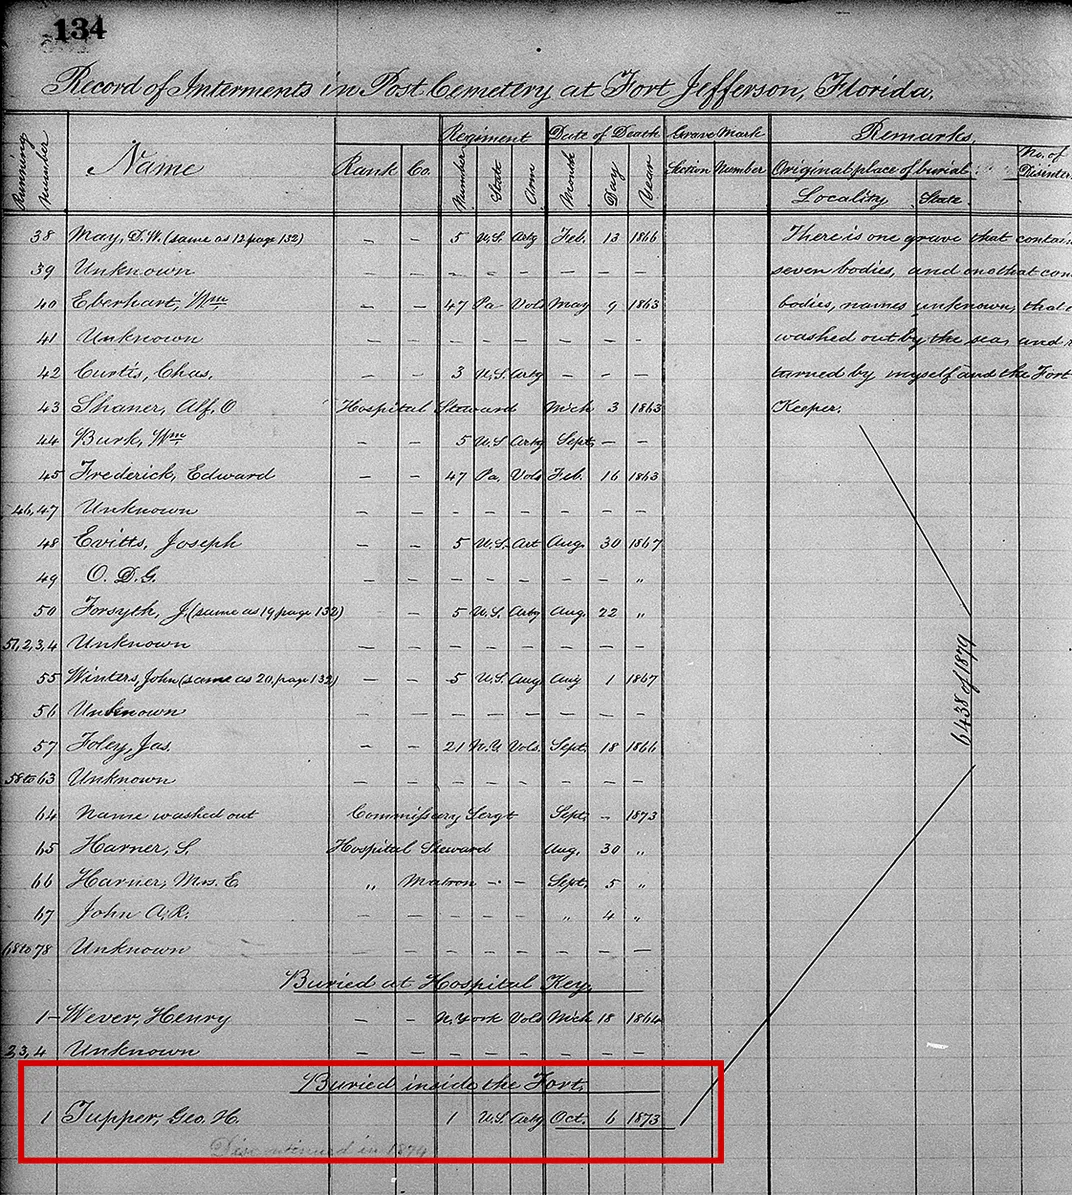 134
Record of Interments in Post Cemetery at Fort Jefferson, Florida.
Running Number Name Rank Co. Regiment Number State Arm Date of Death Month Day Year Grave Mark Section Number Remarks. Original place of burial. Locality State No. of Disinter
38 May, D.W. (same as 12 page 132) – – 5 U.S. Arty Feb. 13 1866 There is one grave that contain
39 Unknown – – – – – – – – seven bodies, and one that con
40 Eberhart, Wm – – 47 Pa Vols May 9 1863 bodies, names unknown, that
41 Unknown – – – – – – – – washed out by the sea, and
42 Curtis, Chas. – – 3 U.S. Arty – – – turned by myself and the Fort
43 Shaner, Alf. O Hospital Steward Mch 3 1863 Keeper.
44 Burk, Wm – – 5 U.S. Arty Sept. – –
45 Frederick, Edward – – 47 Pa. Vols Feb. 16 1863
46,47 Unknown – – – – – – – –
48 Evitts, Joseph – – 5 U.S. Art Aug. 30 1867
49 O. D. G. – – – – – – – "
50 Forsyth, J. (same as 19 page 132) – 5 U.S. Arty Aug. 22 "
51,2,3,4 Unknown – – – – – – – –
55 Winters, John (same as 20, page 132) – 5 U.S. Aug Aug 1 1867
56 Unknown – – – – – – – –
57 Foley, Jas. – – 21 Vols. Sept. 18 1866
58 to 63 Unknown – – – – – – – –
64 Name washed out Commissary Sergt Sept. – 1873
65 Harner, S. Hospital Steward Aug. 30 "
66 Harner, Mrs. E. " Matron – – Sept. 5 "
67 John A. R. – – – – – " 4 "
68 to 78 Unknown – – – – – – – –
6438 of 1879
Buried at Hospital Key.
1 – Wever, Henry – – N. York Vols Mch 18 1864
2,3,4 Unknown – – – – – – – –
Buried inside the Fort.
1 Tupper, Geo. H. 1 U.S. Arty Oct. 6 1873
Discontinued in 1874